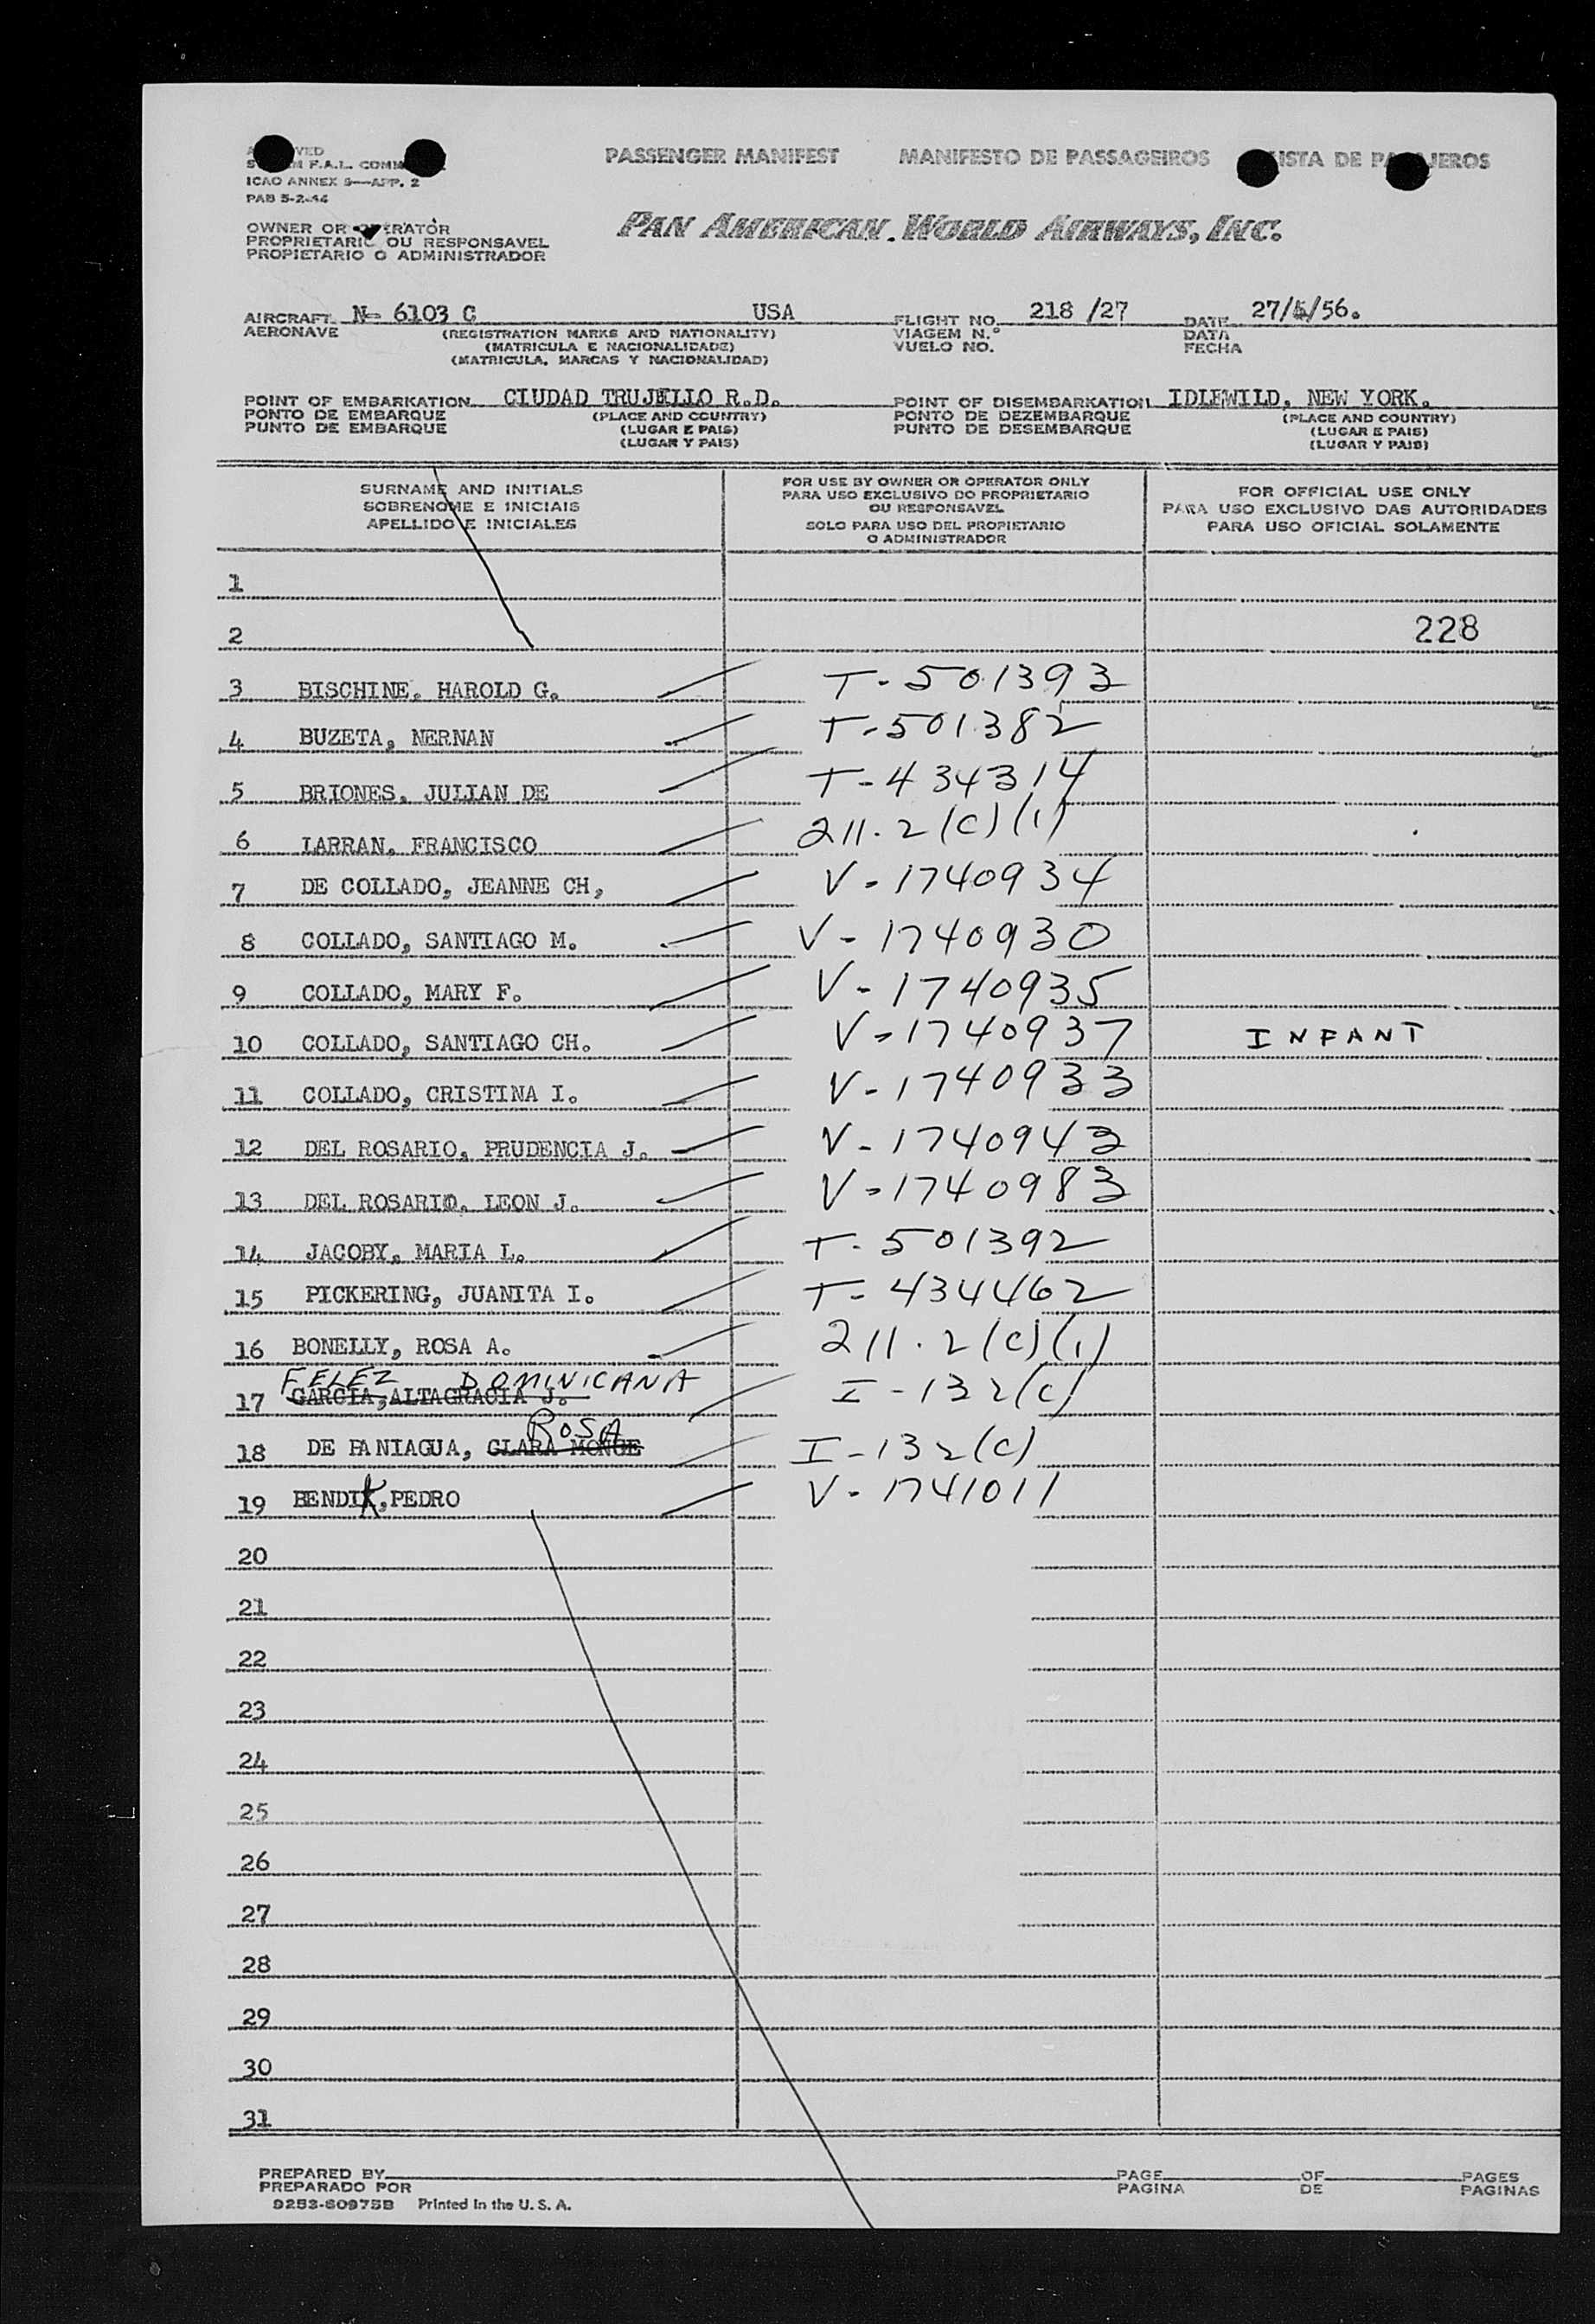 PASSENGER MANIFEST MANIFESTO DE PASSAGEIROS LISTA DE PASAJEROS
F.A.L. COMM
ICAO ANNEX 9—APP. 2
PAB 5-2-46
OWNER OR OPERATOR
PROPRIETARIO OU RESPONSAVEL
PROPIETARIO O ADMINISTRADOR
PAN AMERICAN WORLD AIRWAYS, INC.
AIRCRAFT N- 6103 C USA FLIGHT NO. 218 /27 DATE 27/5/56.
AERONAVE (REGISTRATION MARKS AND NATIONALITY) VIAGEM N.º DATA
(MATRICULA E NACIONALIDADE) VUELO NO. FECHA
(MATRICULA, MARCAS Y NACIONALIDAD)
POINT OF EMBARKATION CIUDAD TRUJILLO R.D. POINT OF DISEMBARKATION IDLEWILD, NEW YORK.
PONTO DE EMBARQUE (PLACE AND COUNTRY) PONTO DE DEZEMBARQUE (PLACE AND COUNTRY)
PUNTO DE EMBARQUE (LUGAR E PAIS) PUNTO DE DESEMBARQUE (LUGAR E PAIS)
(LUGAR Y PAIS) (LUGAR Y PAIS)
SURNAME AND INITIALS
SOBRENOME E INICIAIS
APELLIDO E INICIALES
FOR USE BY OWNER OR OPERATOR ONLY
PARA USO EXCLUSIVO DO PROPRIETARIO
OU RESPONSAVEL
SOLO PARA USO DEL PROPIETARIO
O ADMINISTRADOR
FOR OFFICIAL USE ONLY
PARA USO EXCLUSIVO DAS AUTORIDADES
PARA USO OFICIAL SOLAMENTE
1
2 228
3 BISCHINE, HAROLD G. T-501393
4 BUZETA, NERNAN T-501382
5 BRIONES, JULIAN DE T-434314
6 LARRAN, FRANCISCO 211.2(C)(1)
7 DE COLLADO, JEANNE CH, V-1740934
8 COLLADO, SANTIAGO M. V-1740930
9 COLLADO, MARY F. V-1740935
10 COLLADO, SANTIAGO CH. V-1740937 INFANT
11 COLLADO, CRISTINA I. V-1740933
12 DEL ROSARIO, PRUDENCIA J. V-1740943
13 DEL ROSARIO, LEON J. V-1740983
14 JACOBY, MARIA L. T-501392
15 PICKERING, JUANITA I. T-434462
16 BONELLY, ROSA A. 211.2(C)(1)
FELEZ DOMINICANA
17 GARCIA, ALTAGRACIA J. I-132(C)
ROSA
18 DE PANIAGUA, CLARA MONGE I-132(C)
19 BENDIK, PEDRO V-1741011
20
21
22
23
24
25
26
27
28
29
30
31
PREPARED BY PAGE OF PAGES
PREPARADO POR PAGINA DE PAGINAS
9253-60975B Printed in the U. S. A.